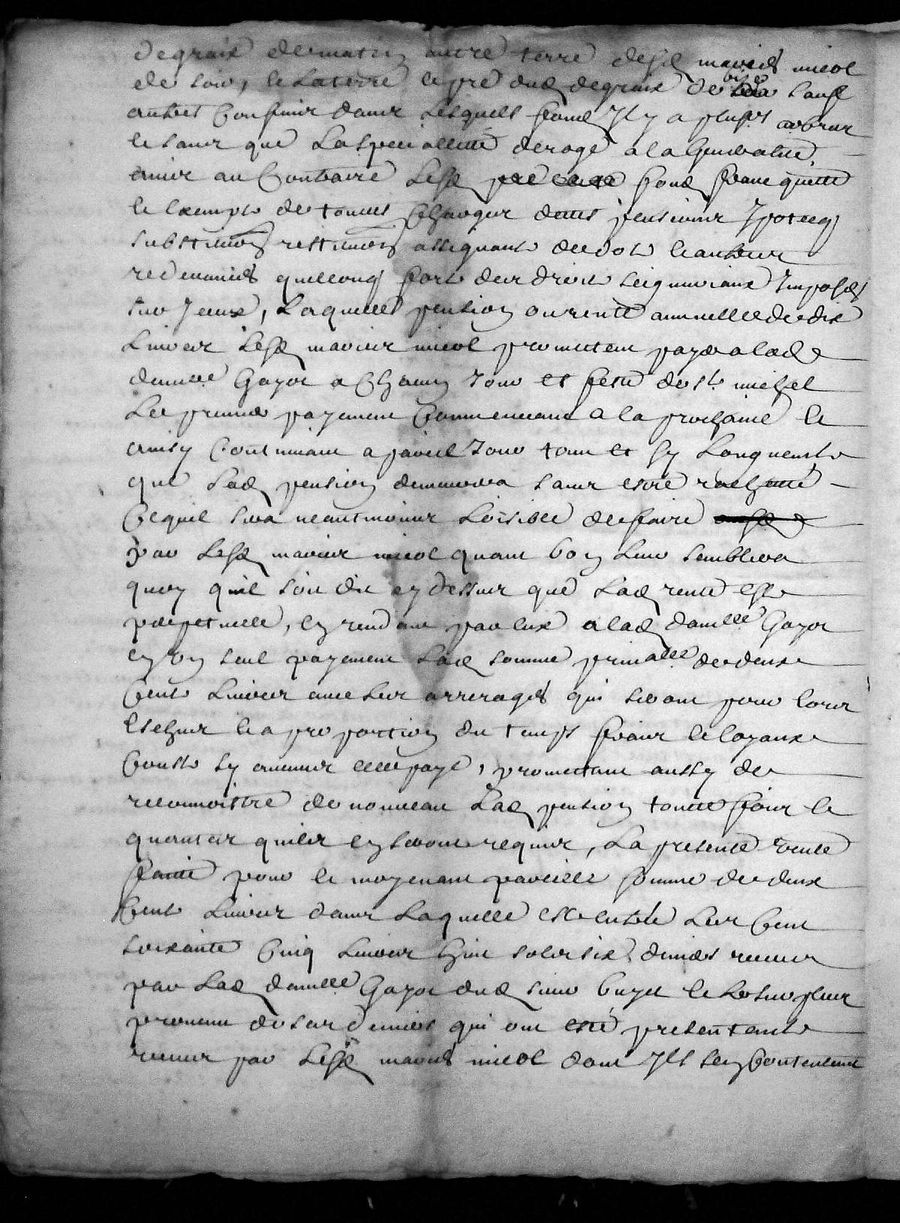 degraix de matin autre terre desd mariés micol
de soir, le la terre le pre dud degraix de bize sauf
autres Confins dans lesquels fond Il y a plusrs arbres
le sans que La speciallitté deroge a la generalitté
ainsi au Contraire Lesd fond franc quitte
le Exempts de touttes Charges dettes pensions Ipotecq
substitutions restitutions assignant de dot
redevances quelconq fort des droits seigneuriaux Imposés
sur Jceux, Laquelle pension ou rente annuelle de dix
Livres Lesd mariés micol promettent payer a lad
damlle Gayot a Chacun Jour et feste de st michel
Le premier payement Commencant a la prochaine le
ainsy Continuant a pareil Jour tant et sy Longuement
que Lad pension demeurera sans estre rachettée
Cequil sera neantmoins Loisible de faire
par Lesd mariés micol quant bon Leur semblera
quoy quil soit dit cy dessus que Lad rente est
perpetuelle, en rendant par eux a lad damlle Gayot
en un seul payement Lad somme prinalle de deux
Cents Livres avec les arrerages qui seront pour lors
Escheus le a proportion du temps frais le loyaux
Cousts sy aucuns elle paye, promettant aussy de
reconnoistre de nouveau Lad pension toutte fois le
quantes quils en seront requis, La presente vente
faitte pour le moyenant pareille somme de deux
Cents Livres dans Laquelle est entrée Les Cent
soixante Cinq Livres huit sols six deniers receus
par Lad damlle Gayot dud sieur le Le surplus
provenant de ses deniers qui ont esté presentement
receus par Lesd mariés micol dont Ils se Contentent